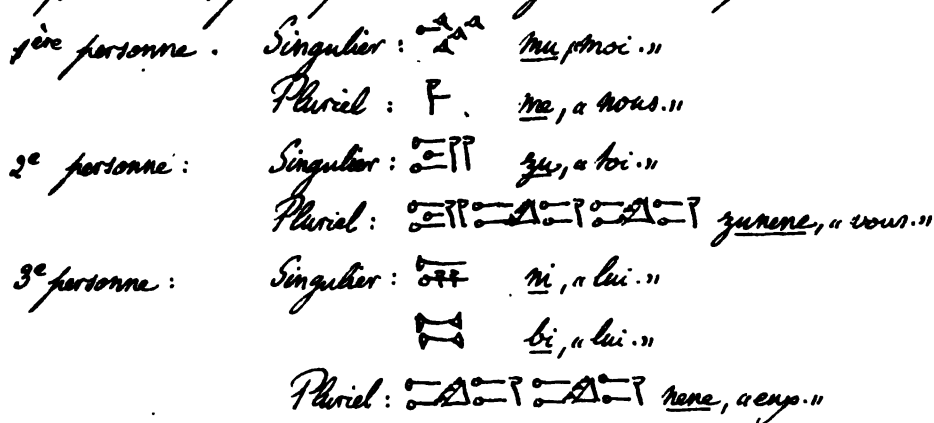 1ère personne. Singulier: 𒈬 mu, «moi.»
Pluriel: 𒈨. me, «nous.»
2e personne: Singulier: zu, «toi.»
Pluriel: zunene, «vous.»
3e personne: Singulier: ni, «lui.»
bi, «lui.»
Pluriel: nene, «eux.»